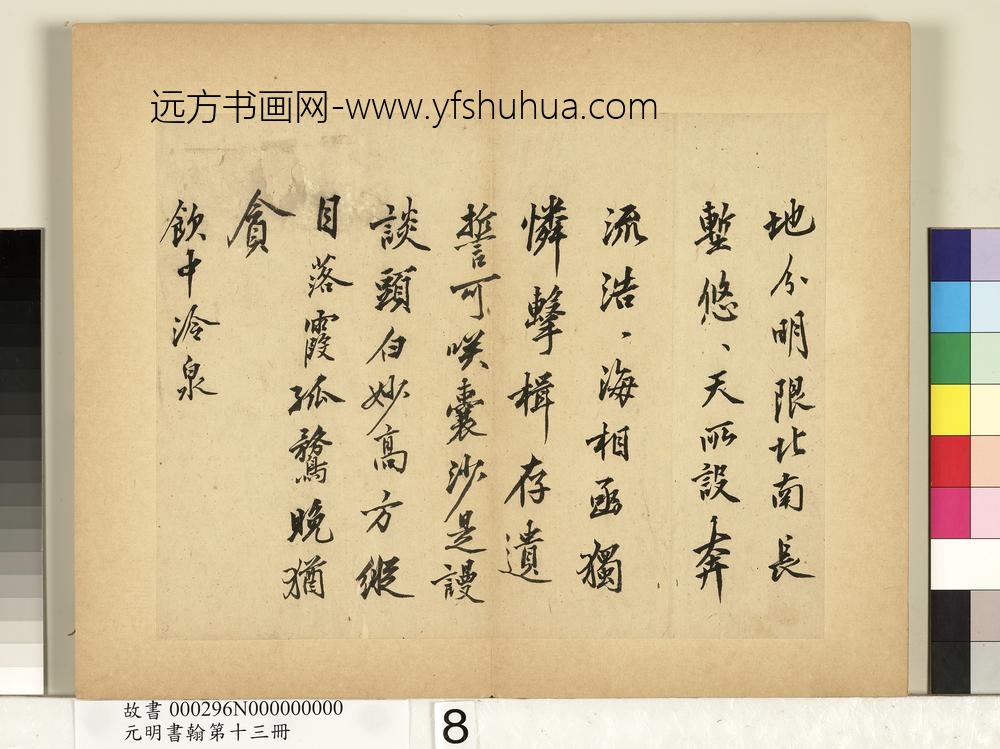 远方书画网-www.yfshuhua.com
地分明限北南長
塹悠、天所設奔
流浩、海相函獨
憐擊楫存遺
誓可咲囊沙是謾
談頭白妙高方縱
目落霞孤鶩晚猶
貪
飲中泠泉
故書 000296N000000000
元明書翰第十三冊
8